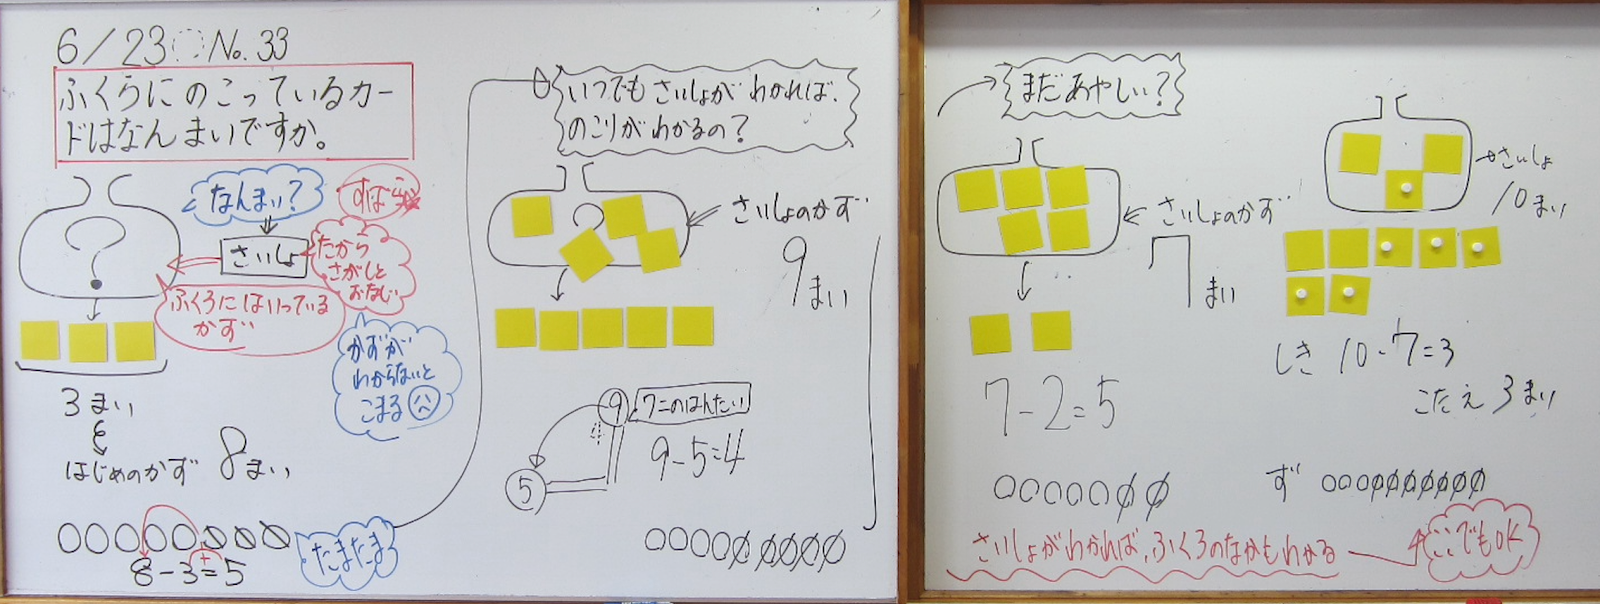 6/23 No.33
ふくらにのこっているカー
ドはなんまいですか。
なんまい?
すばら
さいしょ
たから
さがしと
おなじ
?
ふくろにはいっている
かず
3まい
はじめのかず 8まい
かずが
わからないと
こまる
8-3=5
+
たまたま
いつでもさいしょがわかれば、
のこりがわかるの?
?
さいしょのかず
9
まい
9
5
9-5=4
まだあやしい?
さいしょのかず
7
まい
7-2=5
さいしょ
10まい
しき 10-7=3
こたえ 3まい
ず
さいしょがわかれば、ふくろのなかもわかる
でもOK